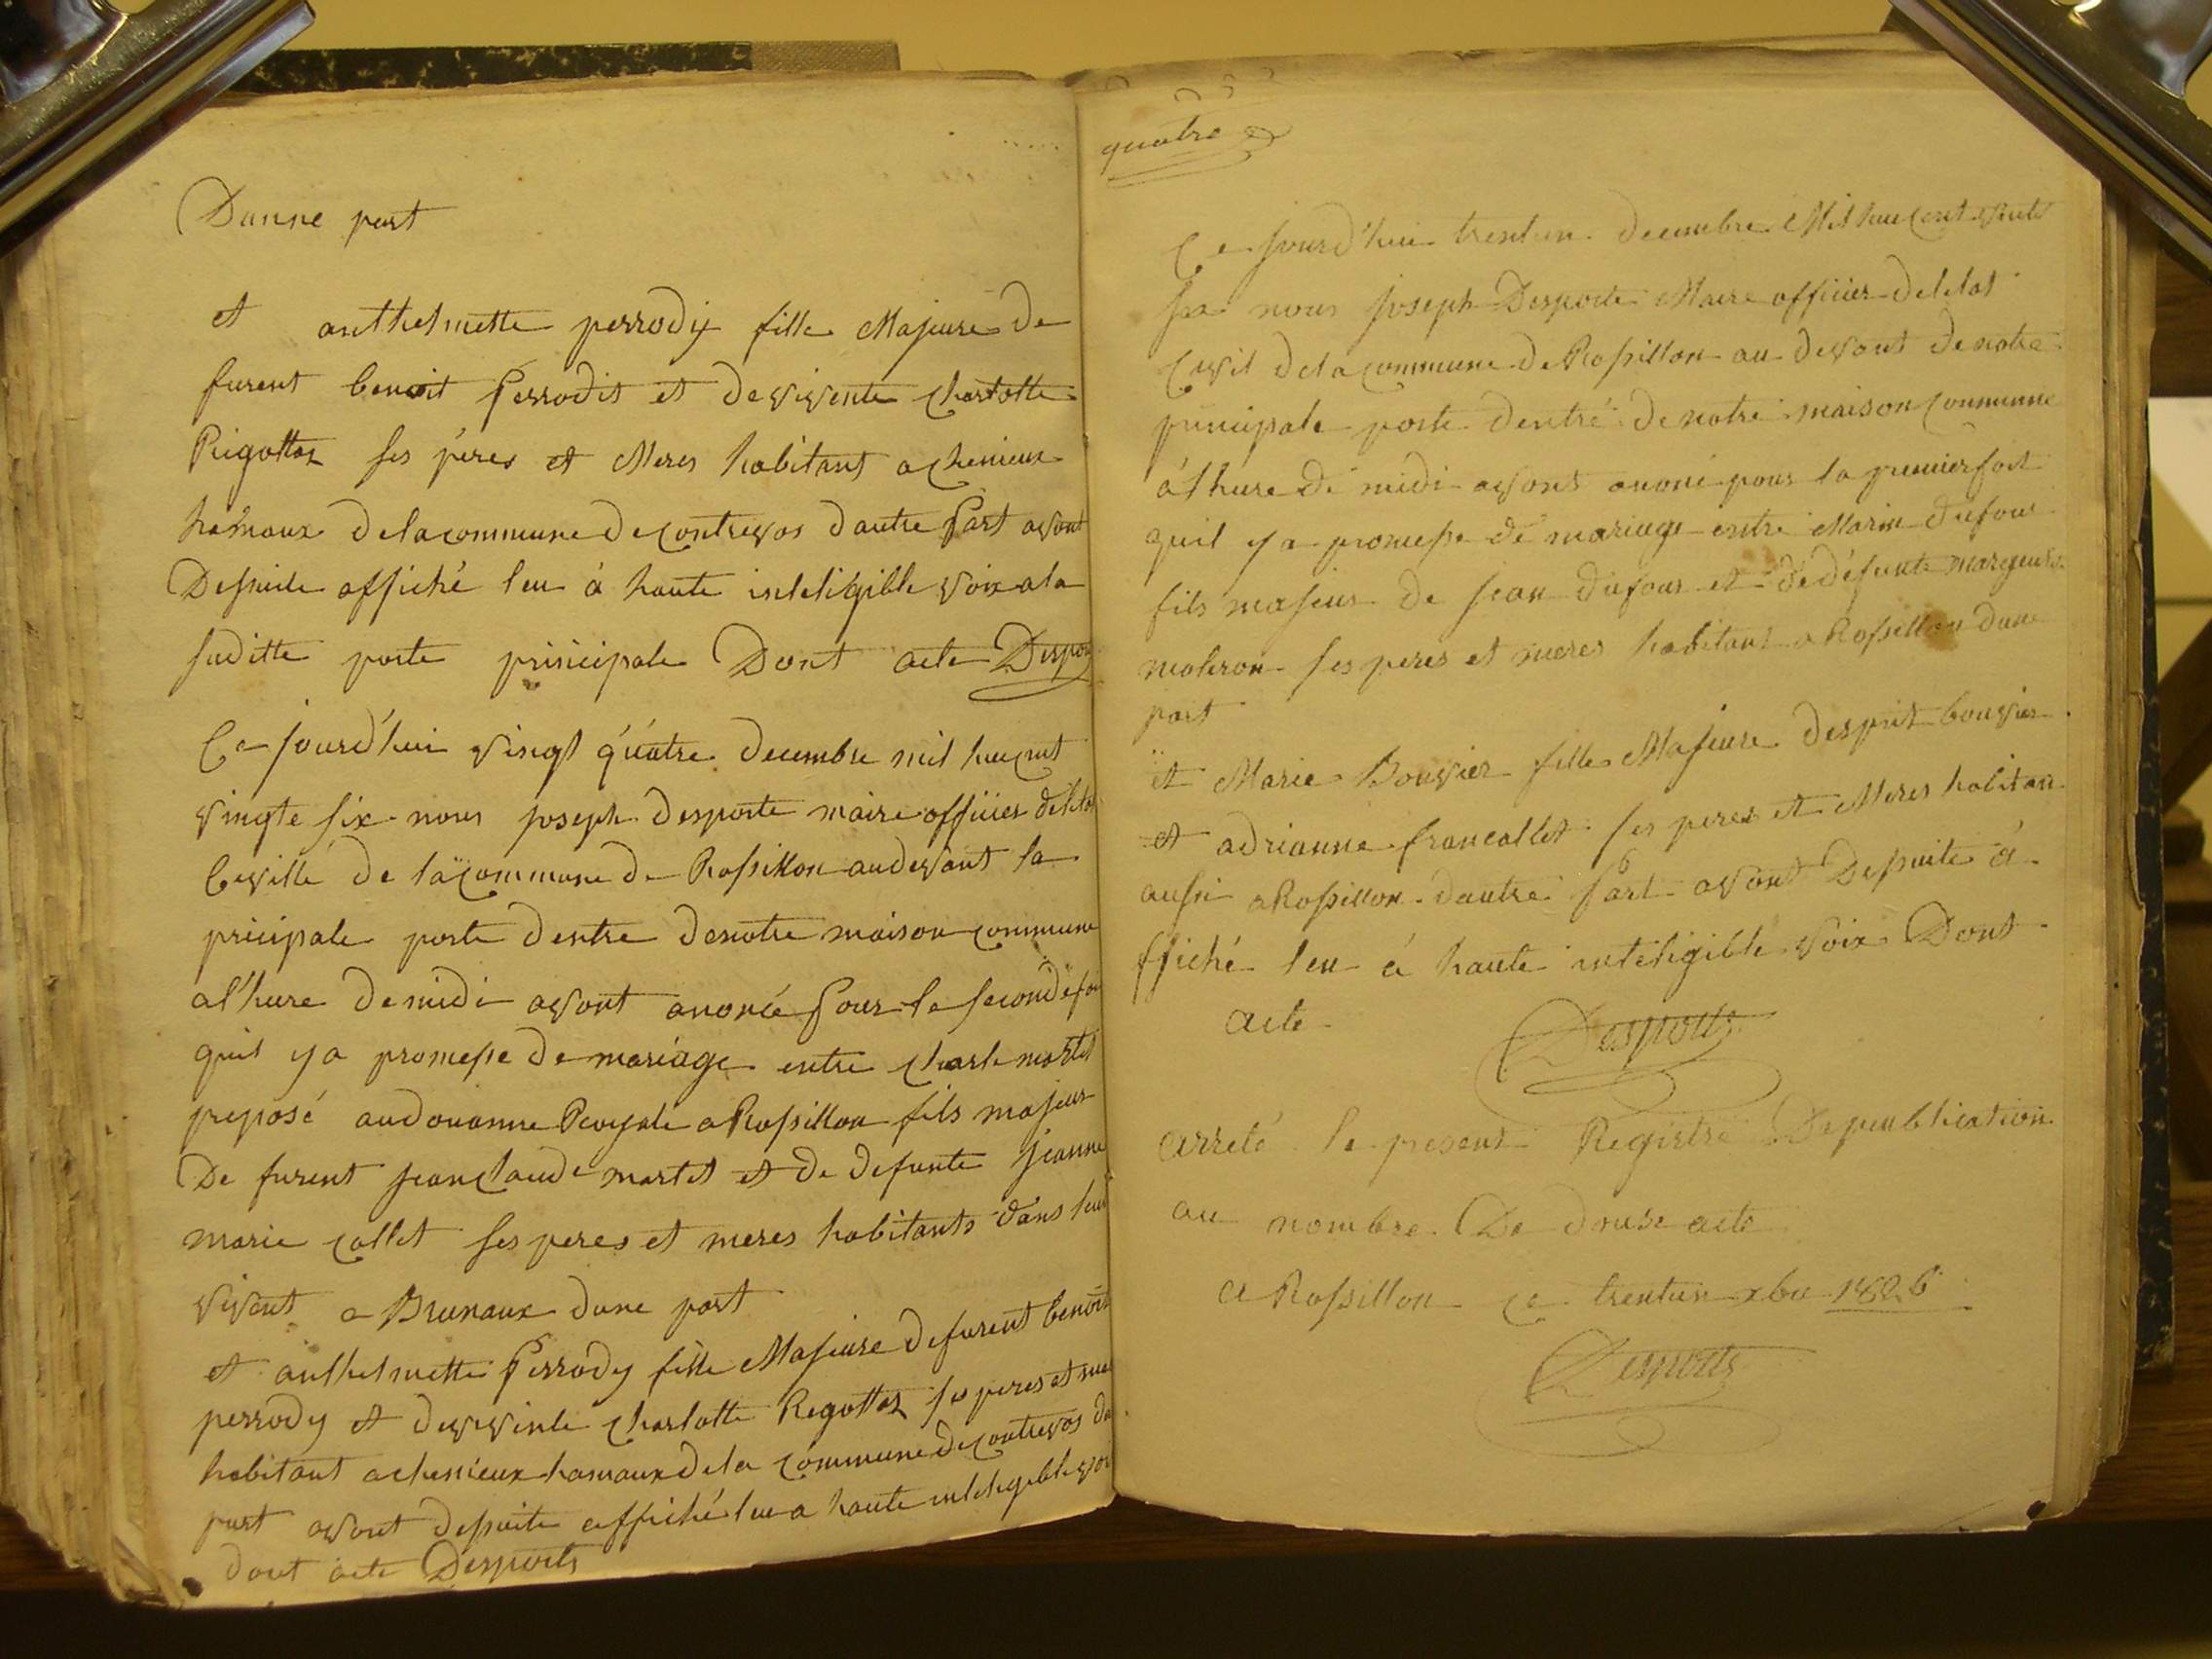 Dunne part
et anthelmette perrody fille Majeure de
furent benoit perrodit et de vivente charlotte
Rigottaz ses péres et Meres habitant a chenieux
hamaux de la commune de contrevos dautre part avont
Desuite affiché leu à haute inteligible voix a la
suditte porte principale Dont acte Despor
Ce jourd'hui vingt quatre decembre mil huicent
vingte six nous joseph desporte maire officier deletat
Civille de la commune de Rossillon audevant la
pricipale porte dentre denotre maison commune
al'hure de midi avont anoncé pour la seconde foi
quil y a promesse de mariage entre charle martet
preposé audouanne Royale a Rossillon fils majeur
De furent jean claude martet et de defunte jeanne
marie collet ses peres et meres habitants dans leur
vivent a Brunaux dune part
et anthelmette perrody fille Majeure de furent benoit
perrody et devivinte charlotte Regottaz ses peres et me
habitant a chenieux hamaux dela commune de contrevos da
part avont desuite affiché leu a haute inteligible voi
dont acte Desporte
quatre
Ce jourd'hui trentun decembre Mil hui cent vint
six nous joseph Desporte Maire officier deletat
Civil dela commune de Rossillon au devant denotre
principale porte dentré denotre maison commune
á l'hure de midi avont anoncé pour la premier foit
quil y a promesse de mariage entre Marin dufour
fils majeur de jean dufour et de défunte margeurite
moleron ses peres et meres habitant a Rossillon dune
part
et Marie Bouvier fille Majeure desprit bouvier
et adrianne francallet ses peres et Meres habitan
aussi a Rossillon dautre part avont Desuite á
ffiché leu á haute inteligible voix Dont
acte Desporte
arreté le present Registre De publication
au nombre De douse acte
a Rossillon ce trentun xbre 1826
Desporte